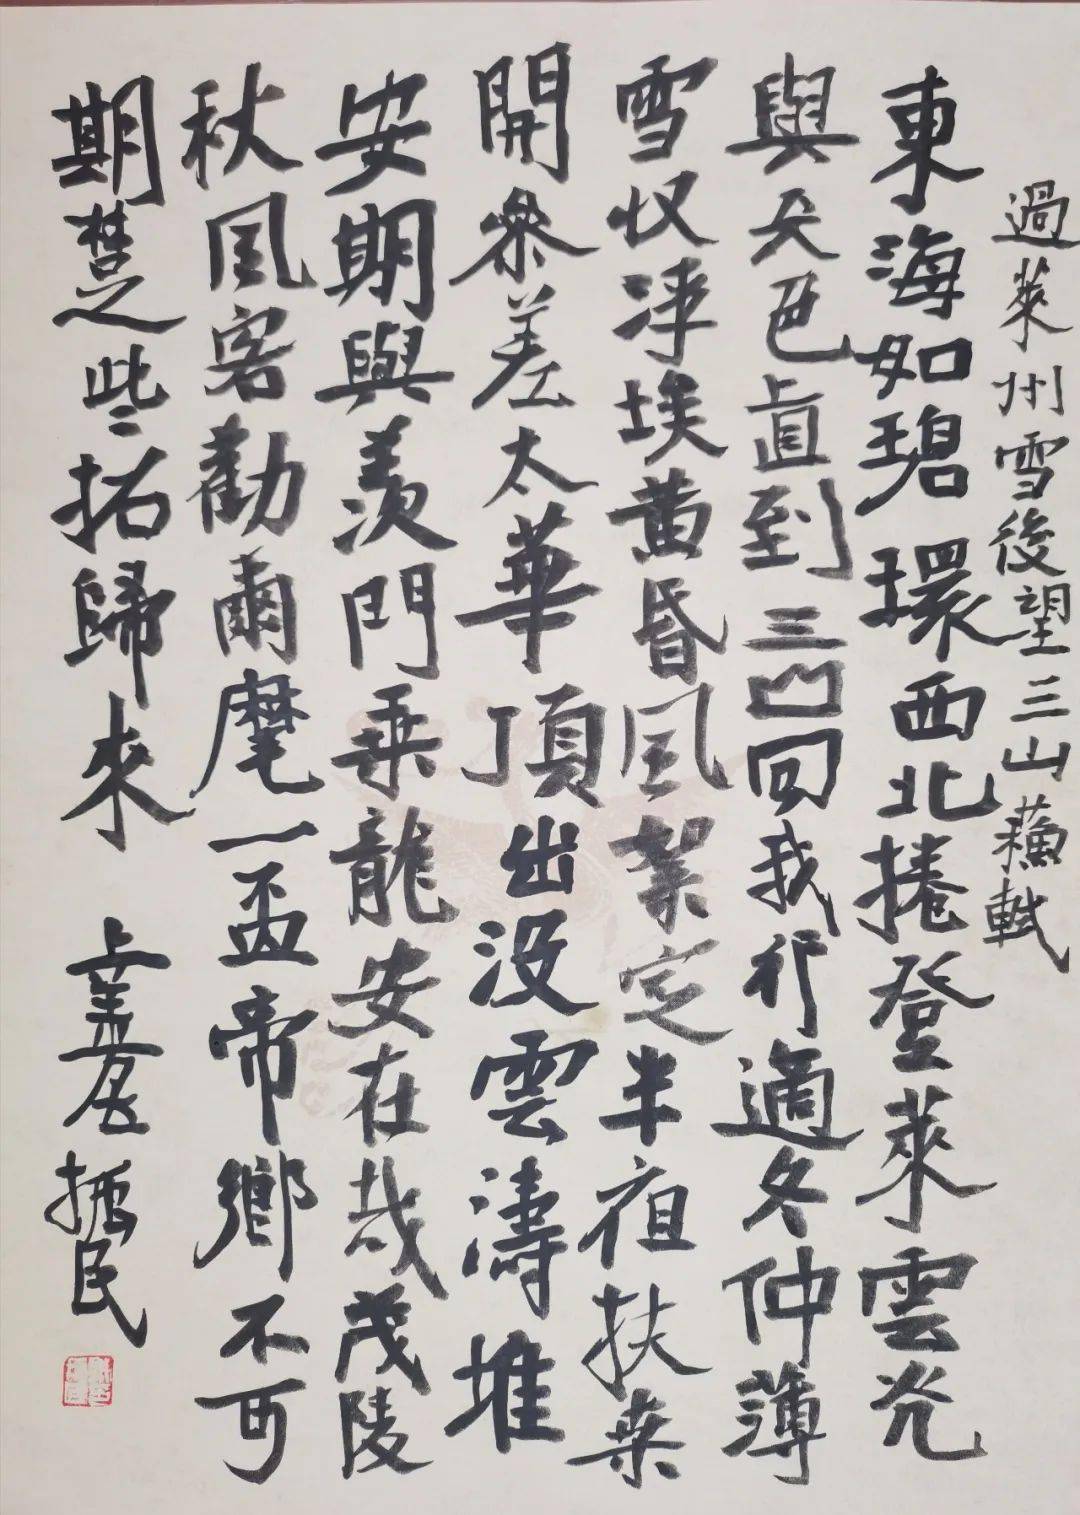 過萊州雪後望三山蘓軾
東海如碧環西北捲登萊雲光
與天色直到三山回我行適冬仲薄
雪收浮埃黄昏風絮定半夜扶桒
開參差太華頂出没雲濤堆
安期與羨門乘龍安在哉茂陵
秋風客勸爾麾一盃帝鄉不可
期楚些招歸來 上善居 民